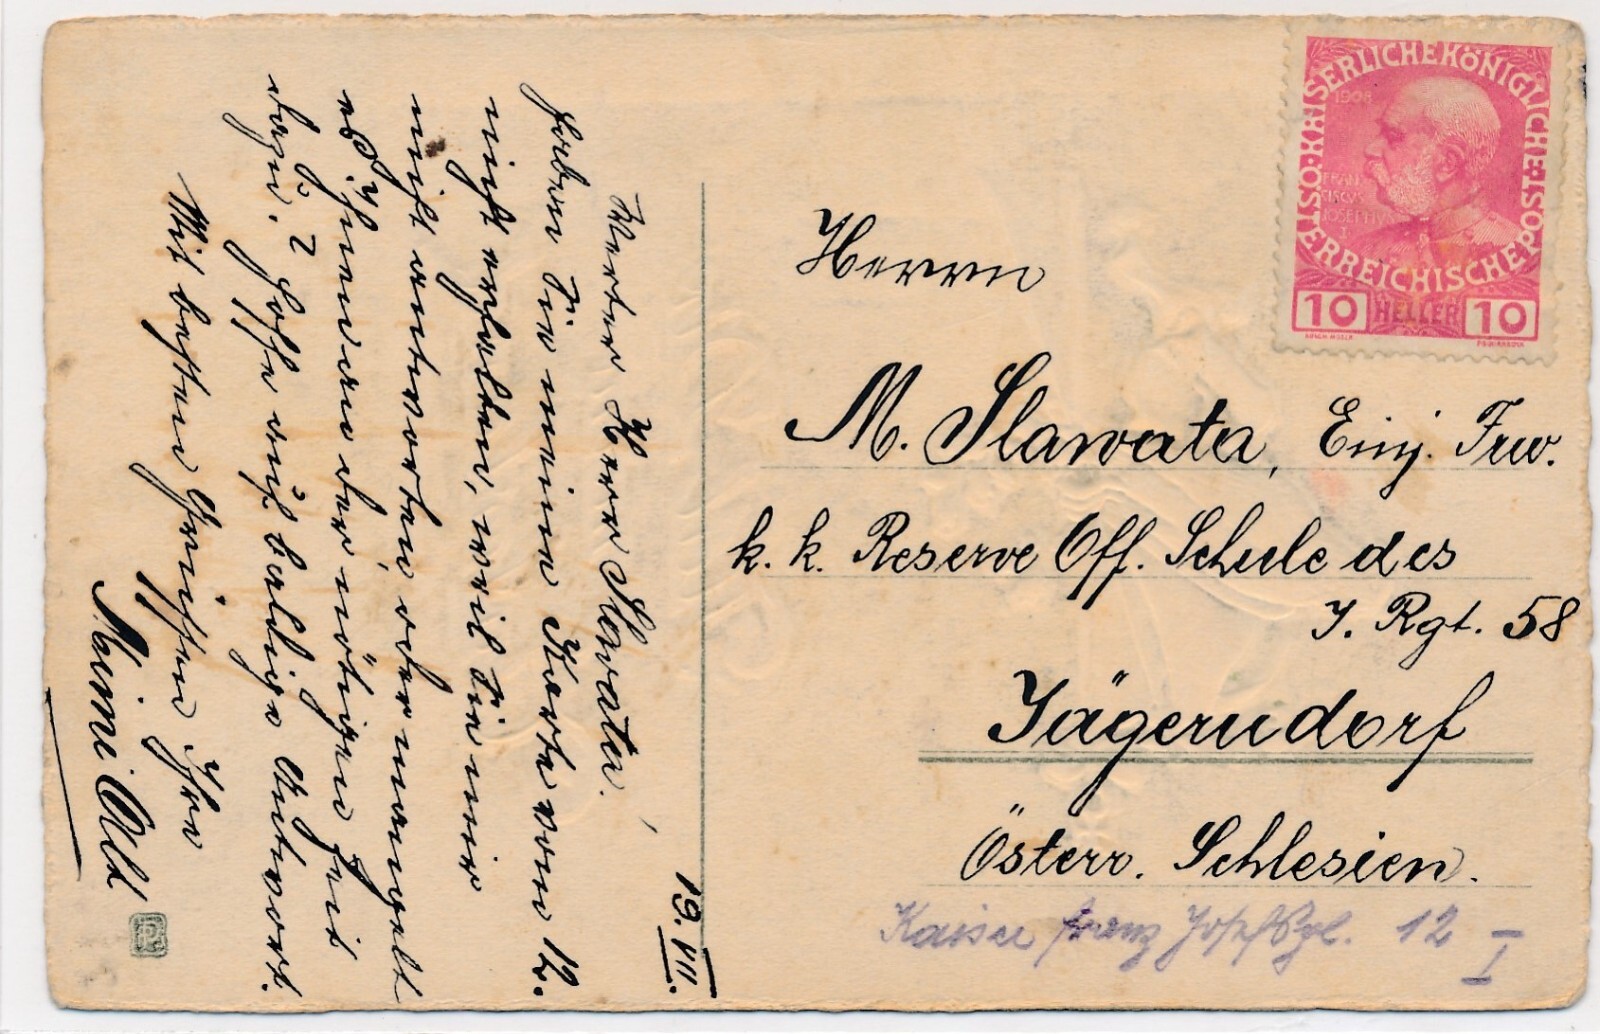 19. VII.
Werter Herr Slavata.
Haben Sie meine Karte vom 12.
nicht erhalten, weil Sie mir
nicht antworten, oder mangelt
es Ihnen an der nötigen Zeit
dazu. ? Hoffe auf baldige Antwort.
Mit besten Grüßen Ihre
Mimi Alt
Herrn
M. Slawata, Einj. Frw.
k. k. Reserve Off. Schule des
I. Rgt. 58
Jägerndorf
Österr. Schlesien.
Kaiser Franz Josef 12
I
KAISERLICHE KÖNIGLICHE ÖSTERREICHISCHE POST
1908
FRAN
CISCVS
JOSEPHVS
I
10 HELLER 10